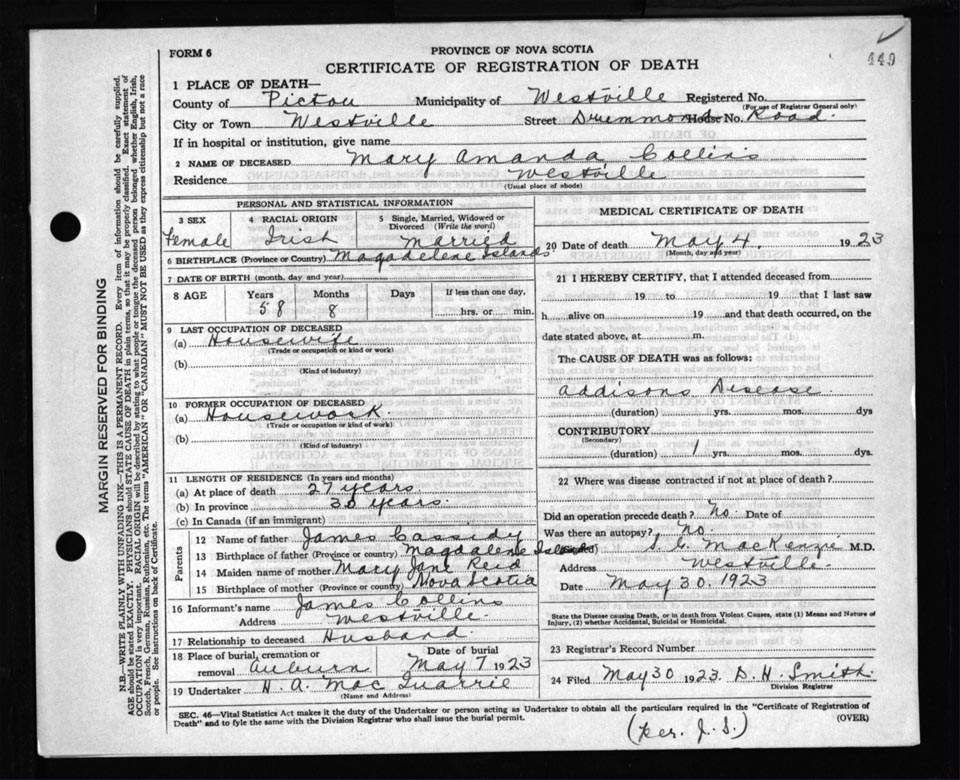 449
FORM 6
PROVINCE OF NOVA SCOTIA
CERTIFICATE OF REGISTRATION OF DEATH
1 PLACE OF DEATH—
County of Pictou Municipality of Westville Registered No.
(For use of Registrar General only)
City or Town Westville Street Drummond House No. Road.
If in hospital or institution, give name
2 NAME OF DECEASED Mary Amanda Collins
Residence Westville
(Usual place of abode)
PERSONAL AND STATISTICAL INFORMATION
3 SEX 4 RACIAL ORIGIN 5 Single, Married, Widowed or Divorced (Write the word)
Female Irish Married
6 BIRTHPLACE (Province or Country) Magadelene Islands
7 DATE OF BIRTH (month, day and year)
8 AGE Years Months Days If less than one day,
58 8 hrs. or min.
9 LAST OCCUPATION OF DECEASED
(a) Housewife
(Trade or occupation or kind or work)
(b)
(Kind of industry)
10 FORMER OCCUPATION OF DECEASED
(a) Housework.
(Trade or occupation or kind of work)
(b)
(Kind of industry)
11 LENGTH OF RESIDENCE (In years and months)
(a) At place of death 27 years
(b) In province 30 years.
(c) In Canada (if an immigrant)
Parents
12 Name of father James Cassidy
13 Birthplace of father (Province or country) Magdalene Islands
14 Maiden name of mother Mary Jane Reid
15 Birthplace of mother (Province or country) Nova Scotia
16 Informant's name James Collins
Address Westville
17 Relationship to deceased Husband.
18 Place of burial, cremation or removal Auburn Date of burial May 7 1923
19 Undertaker H. A. MacQuarrie
(Name and Address)
MEDICAL CERTIFICATE OF DEATH
20 Date of death May 4, 1923
(Month, day and year)
21 I HEREBY CERTIFY, that I attended deceased from
19 to 19 that I last saw
h alive on 19 and that death occurred, on
date stated above, at m.
The CAUSE OF DEATH was as follows:
Addisons Disease
(duration) yrs. mos. dys
CONTRIBUTORY
(Secondary)
(duration) 1 yrs. mos. dys.
22 Where was disease contracted if not at place of death?
Did an operation precede death? No. Date of
Was there an autopsy? No.
S. G. MacKenzie M.D.
Address Westville.
Date May 30. 1923
State the Disease causing Death, or in death from Violent Causes, state (1) Means and Nature of Injury, (2) whether Accidental, Suicidal or Homicidal.
23 Registrar's Record Number
24 Filed May 30 1923. D. H. Smith.
Division Registrar
SEC. 46—Vital Statistics Act makes it the duty of the Undertaker or person acting as Undertaker to obtain all the particulars required in the "Certificate of Registration of
Death" and to fyle the same with the Division Registrar who shall issue the burial permit. (OVER)
(Per. J. S.)
MARGIN RESERVED FOR BINDING
N.B.—WRITE PLAINLY WITH UNFADING INK—THIS IS A PERMANENT RECORD. Every item of information should be carefully supplied.
AGE should be stated EXACTLY. PHYSICIANS should STATE CAUSE OF DEATH in plain terms, so that it may be properly classified. Exact statement of
OCCUPATION is very important. RACIAL ORIGIN will be described by stating to what people or tongue the deceased person belonged whether English, Irish,
Scotch, French, German, Russian, Ruthenian, etc. The terms "AMERICAN" OR "CANADIAN" MUST NOT BE USED as they express citizenship but not a race
or people. See instructions on back of Certificate.